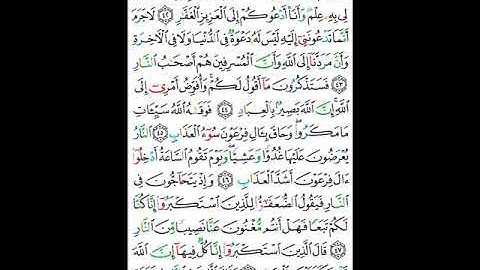 لِي بِهِۦ عِلۡمٞ وَأَنَا۠ أَدۡعُوكُمۡ إِلَى ٱلۡعَزِيزِ ٱلۡغَفَّٰرِ ٤٢ لَا جَرَمَ
أَنَّمَا تَدۡعُونَنِيٓ إِلَيۡهِ لَيۡسَ لَهُۥ دَعۡوَةٞ فِي ٱلدُّنۡيَا وَلَا فِي ٱلۡأٓخِرَةِ
وَأَنَّ مَرَدَّنَآ إِلَى ٱللَّهِ وَأَنَّ ٱلۡمُسۡرِفِينَ هُمۡ أَصۡحَٰبُ ٱلنَّارِ
٤٣ فَسَتَذۡكُرُونَ مَآ أَقُولُ لَكُمۡۚ وَأُفَوِّضُ أَمۡرِيٓ إِلَى
ٱللَّهِۚ إِنَّ ٱللَّهَ بَصِيرُۢ بِٱلۡعِبَادِ ٤٤ فَوَقَىٰهُ ٱللَّهُ سَيِّـَٔاتِ
مَا مَكَرُواْۖ وَحَاقَ بِـَٔالِ فِرۡعَوۡنَ سُوٓءُ ٱلۡعَذَابِ ٤٥ ٱلنَّارُ
يُعۡرَضُونَ عَلَيۡهَا غُدُوّٗا وَعَشِيّٗاۚ وَيَوۡمَ تَقُومُ ٱلسَّاعَةُ أَدۡخِلُوٓاْ
ءَالَ فِرۡعَوۡنَ أَشَدَّ ٱلۡعَذَابِ ٤٦ وَإِذۡ يَتَحَآجُّونَ فِي
ٱلنَّارِ فَيَقُولُ ٱلضُّعَفَٰٓؤُاْ لِلَّذِينَ ٱسۡتَكۡبَرُوٓاْ إِنَّا كُنَّا
لَكُمۡ تَبَعٗا فَهَلۡ أَنتُم مُّغۡنُونَ عَنَّا نَصِيبٗا مِّنَ ٱلنَّارِ
٤٧ قَالَ ٱلَّذِينَ ٱسۡتَكۡبَرُوٓاْ إِنَّا كُلّٞ فِيهَآ إِنَّ ٱللَّهَ